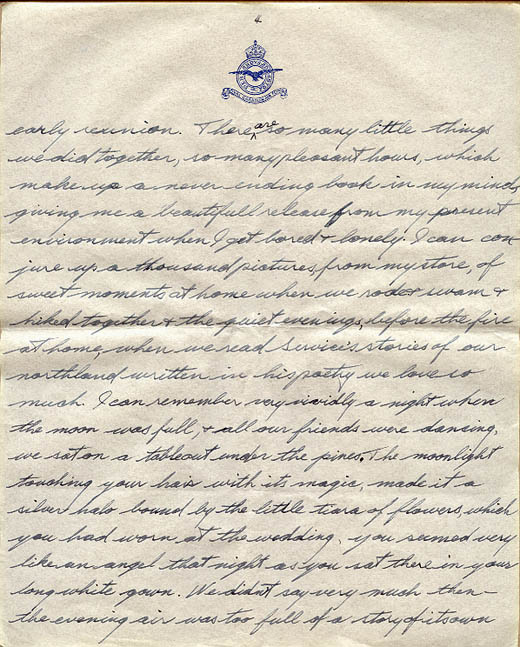 4
early reunion. There are so many little things
we did together, so many pleasant hours, which
make up a never ending book in my mind,
giving me a beautifull release from my present
environment when I get bored & lonely. I can con
jure up a thousand pictures, from my store, of
sweet moments at home when we rode & swam &
hiked together & the quiet evenings, before the fire
at home, when we read Service's stories of our
northland written in his poetry we love so
much. I can remember very vividly a night when
the moon was full, & all our friends were dancing,
we sat on a table out under the pines. The moonlight
touching your hair with its magic, made it a
silver halo bound by the little tiara of flowers, which
you had worn at the wedding, you seemed very
like an angel that night as you sat there in your
long white gown. We didn't say very much then —
the evening air was too full of a story of its own